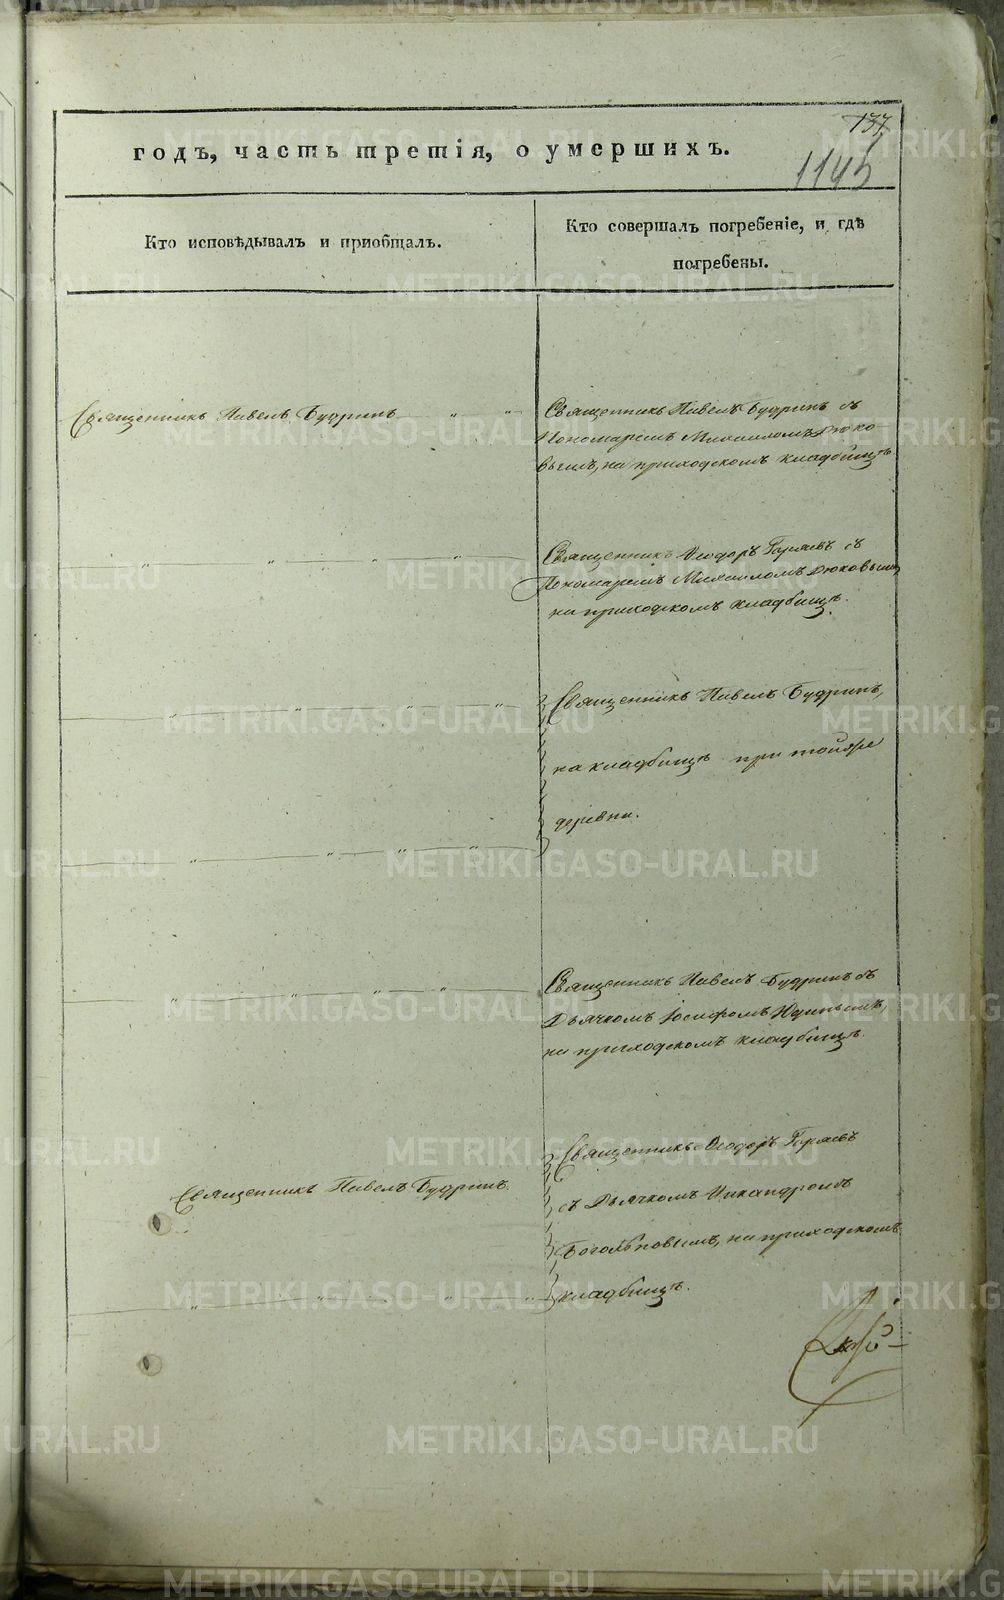 137
годъ, часть третія, о умершихъ.
1145
Кто исповѣдывалъ и пріобщалъ.
Кто совершалъ погребеніе, и гдѣ
погребены.
Священникъ Павелъ Будринъ " "
Священникъ Павелъ Будринъ съ
Пономаремъ Михаиломъ Дюко-
вымъ, на приходскомъ кладбищѣ.
Священникъ Ѳеодоръ съ
Пономаремъ Михаиломъ Дюковымъ,
на приходскомъ кладбищѣ.
Священникъ Павелъ Будринъ,
на кладбищѣ при тойже
деревни.
Священникъ Павелъ Будринъ съ
Дьячкомъ Іосифомъ Юдинымъ,
на приходскомъ кладбищѣ.
Священникъ Павелъ Будринъ.
Священникъ Ѳеодоръ
съ Дьячкомъ Никандромъ
Боголѣповымъ, на приходскомъ
кладбищѣ.
METRIKI.GASO-URAL.RU